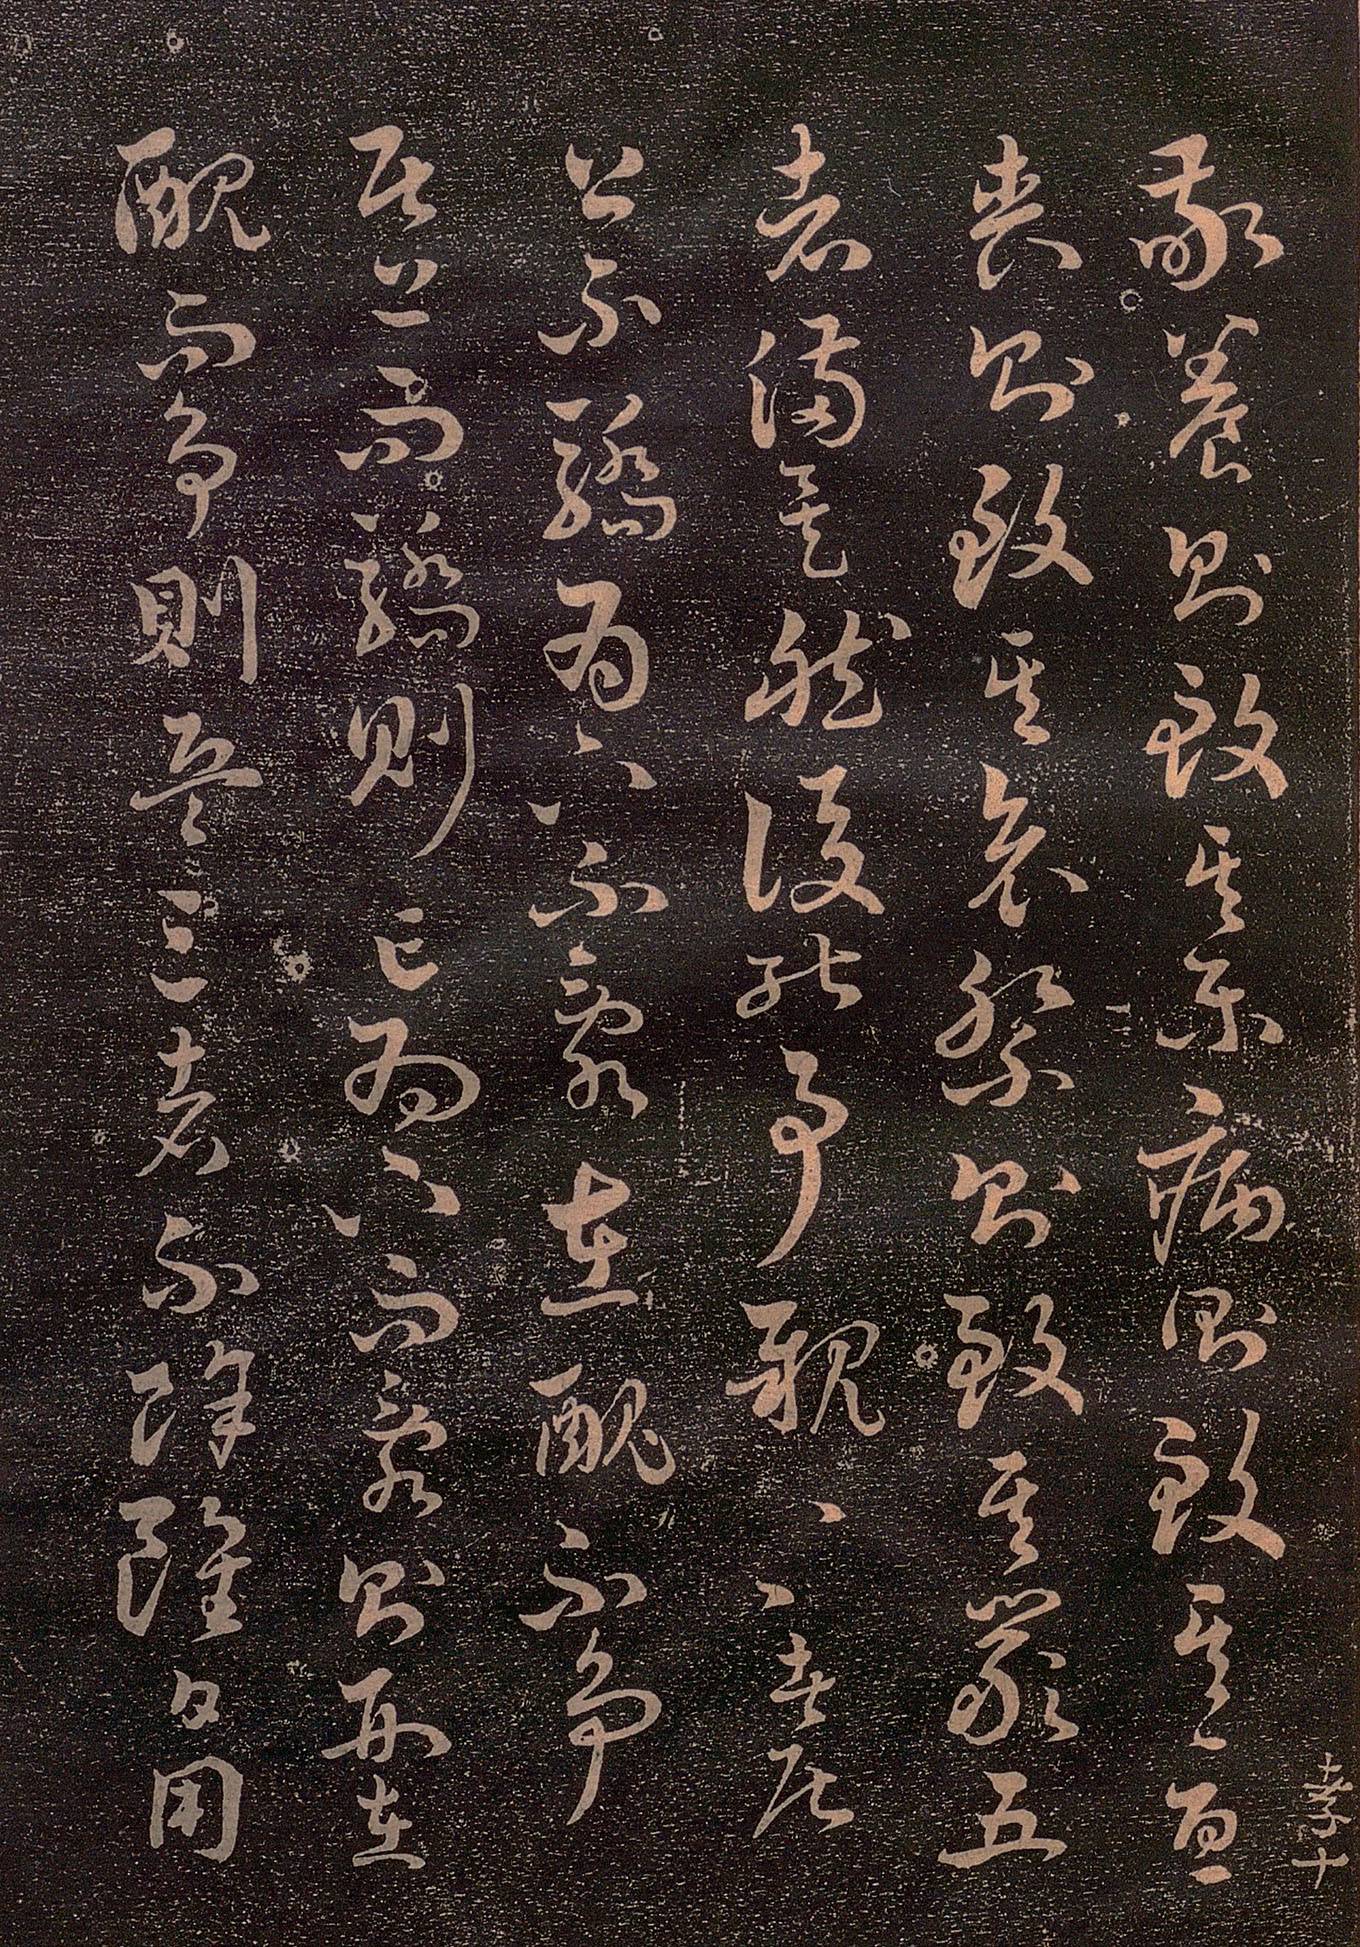 敬養則致其樂病則致其憂
喪則致其哀祭則致其嚴五
者備矣然後能事親々々者居
上不驕為下不亂在醜不爭
居上而驕則亡為下而亂則刑在
醜而爭則兵三者不除雖日用
孝十